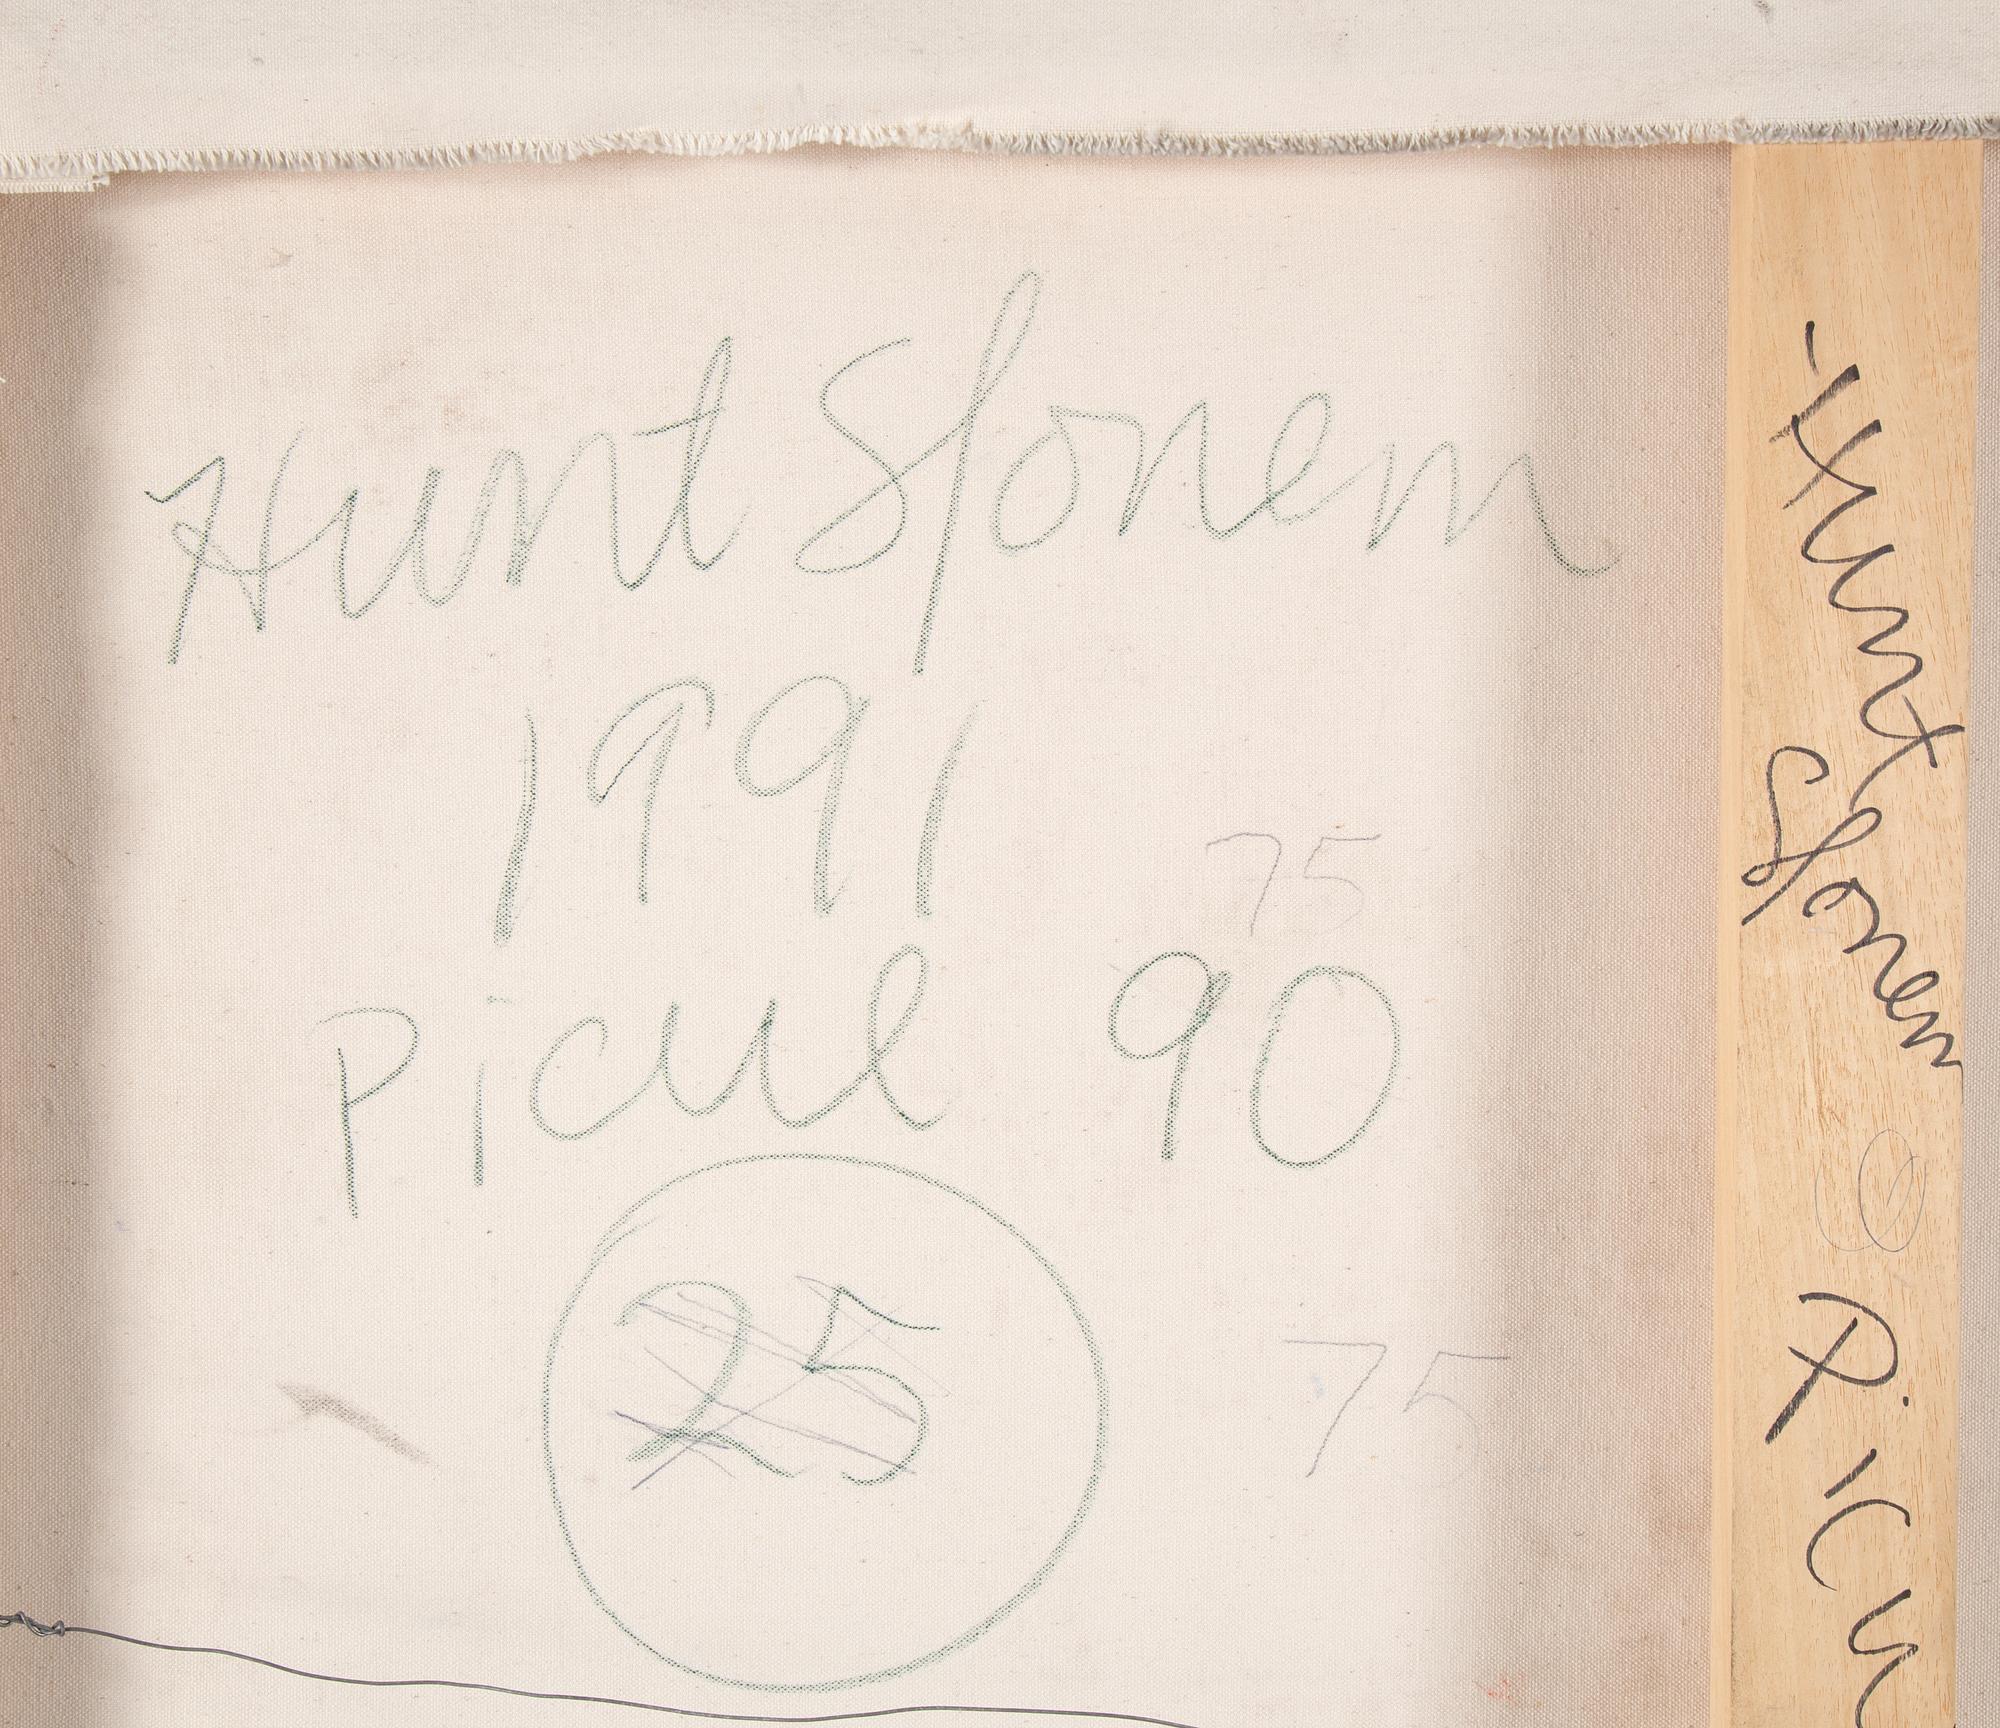 Hunt Slonem
1991
75
Picul 90
25
75
Hunt Slonem
Picu